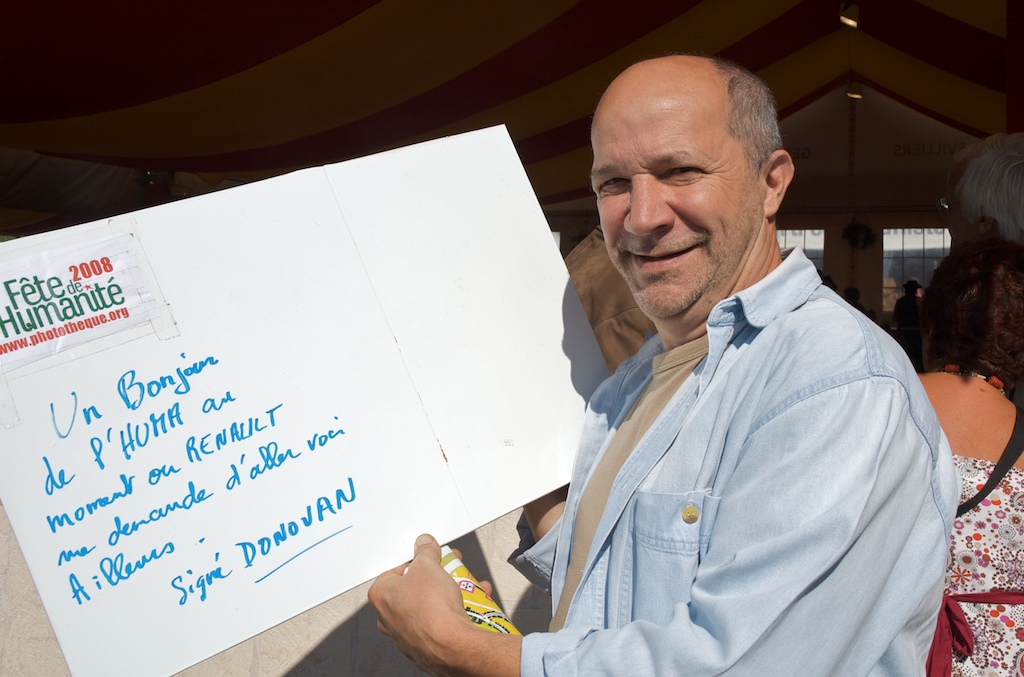 Fête de 2008
l'Humanité
www.phototheque.org
Un Bonjour
de l'HUMA au
moment ou RENAULT
me demande d'aller voir
Ailleurs.
Signé DONOVAN